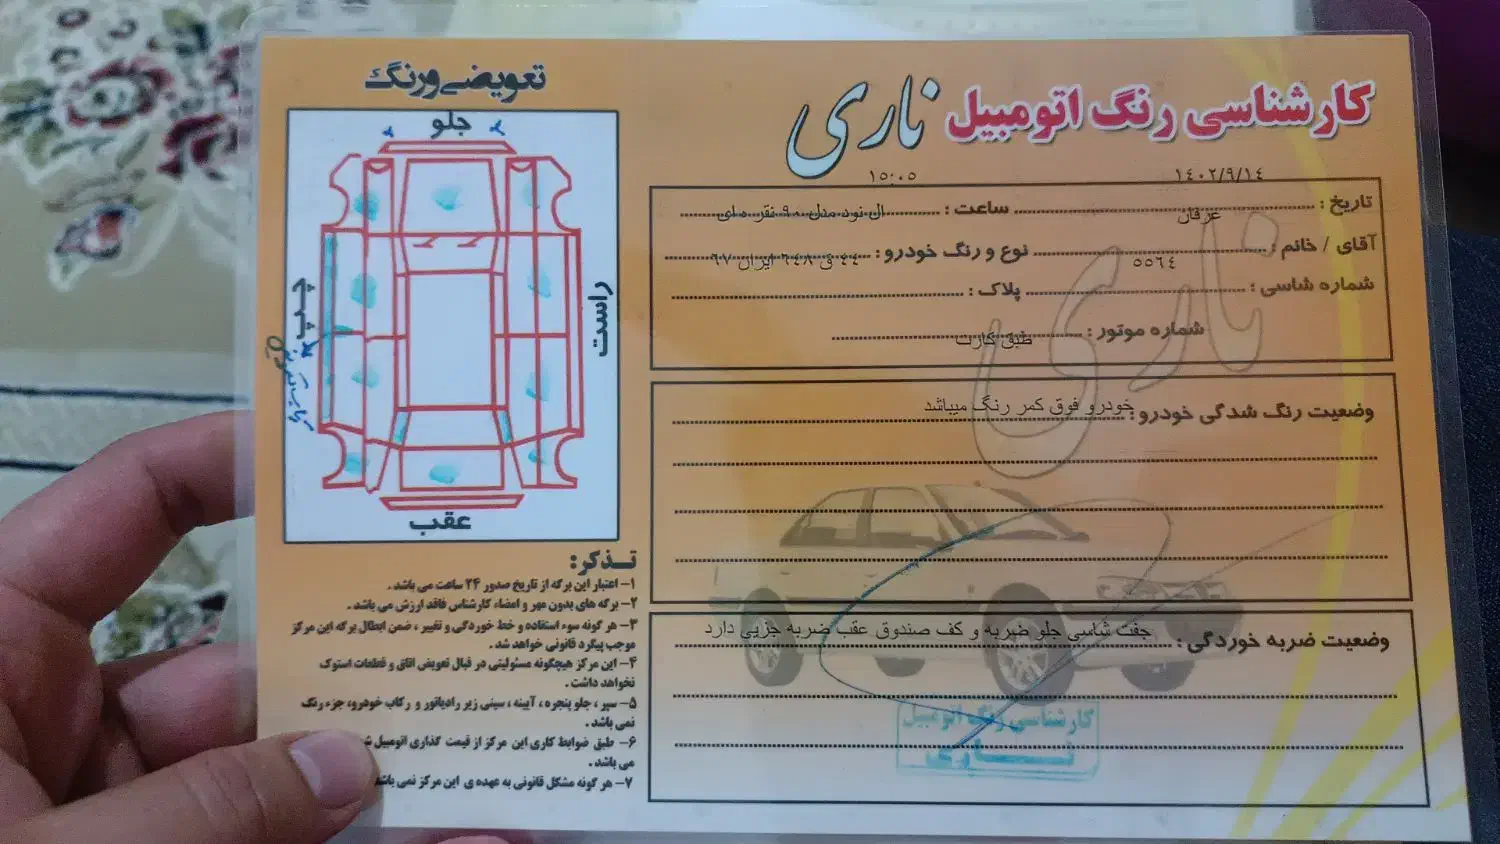 کارشناسی رنگ اتومبیل ناری
۱۴۰۲/۹/۱۴
۱۵:۰۵
تاریخ :
ساعت :
ال نود مدل ۹۰ نقره ای
عرفان
آقای / خانم :
نوع و رنگ خودرو :
۴۴ ق ۶۴۸ ایران ۶۷
۵۵۶۴
شماره شاسی :
پلاک :
شماره موتور :
طبق کارت
وضعیت رنگ شدگی خودرو :
خودرو فوق کمر رنگ میباشد
وضعیت ضربه خوردگی :
جفت شاسی جلو ضربه و کف صندوق عقب ضربه جزیی دارد
کارشناسی رنگ اتومبیل
نــاری
ناری
تعویضی و رنگ
جلو
چپ
راست
عقب
تـذکر:
۱– اعتبار این برگه از تاریخ صدور ۲۴ ساعت می باشد .
۲– برگه های بدون مهر و امضاء کارشناس فاقد ارزش می باشد .
۳– هر گونه سوء استفاده و خط خوردگی و تغییر ، ضمن ابطال برگه این مرکز
موجب پیگرد قانونی خواهد شد .
۴– این مرکز هیچگونه مسئولیتی در قبال تعویض اتاق و قطعات استوک
نخواهد داشت .
۵– سپر ، جلو پنجره ، آیینه ، سینی زیر رادیاتور و رکاب خودرو، جزء رنگ
نمی باشد .
۶– طبق ضوابط کاری این مرکز از قیمت گذاری اتومبیل
می باشد .
۷– هر گونه مشکل قانونی به عهده ی این مرکز نمی باشد